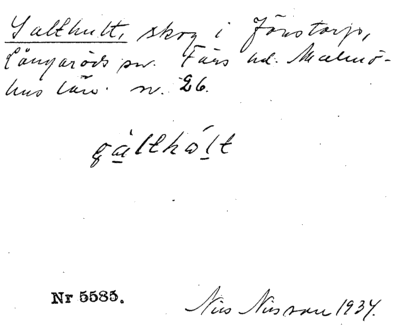 Galthult, skog i Jönstorp,
Långaröds sn. Färs hd. Malmö-
hus län. n. 26.
gàlthólt
Nr 5585.
Nils Nilsson 1934.